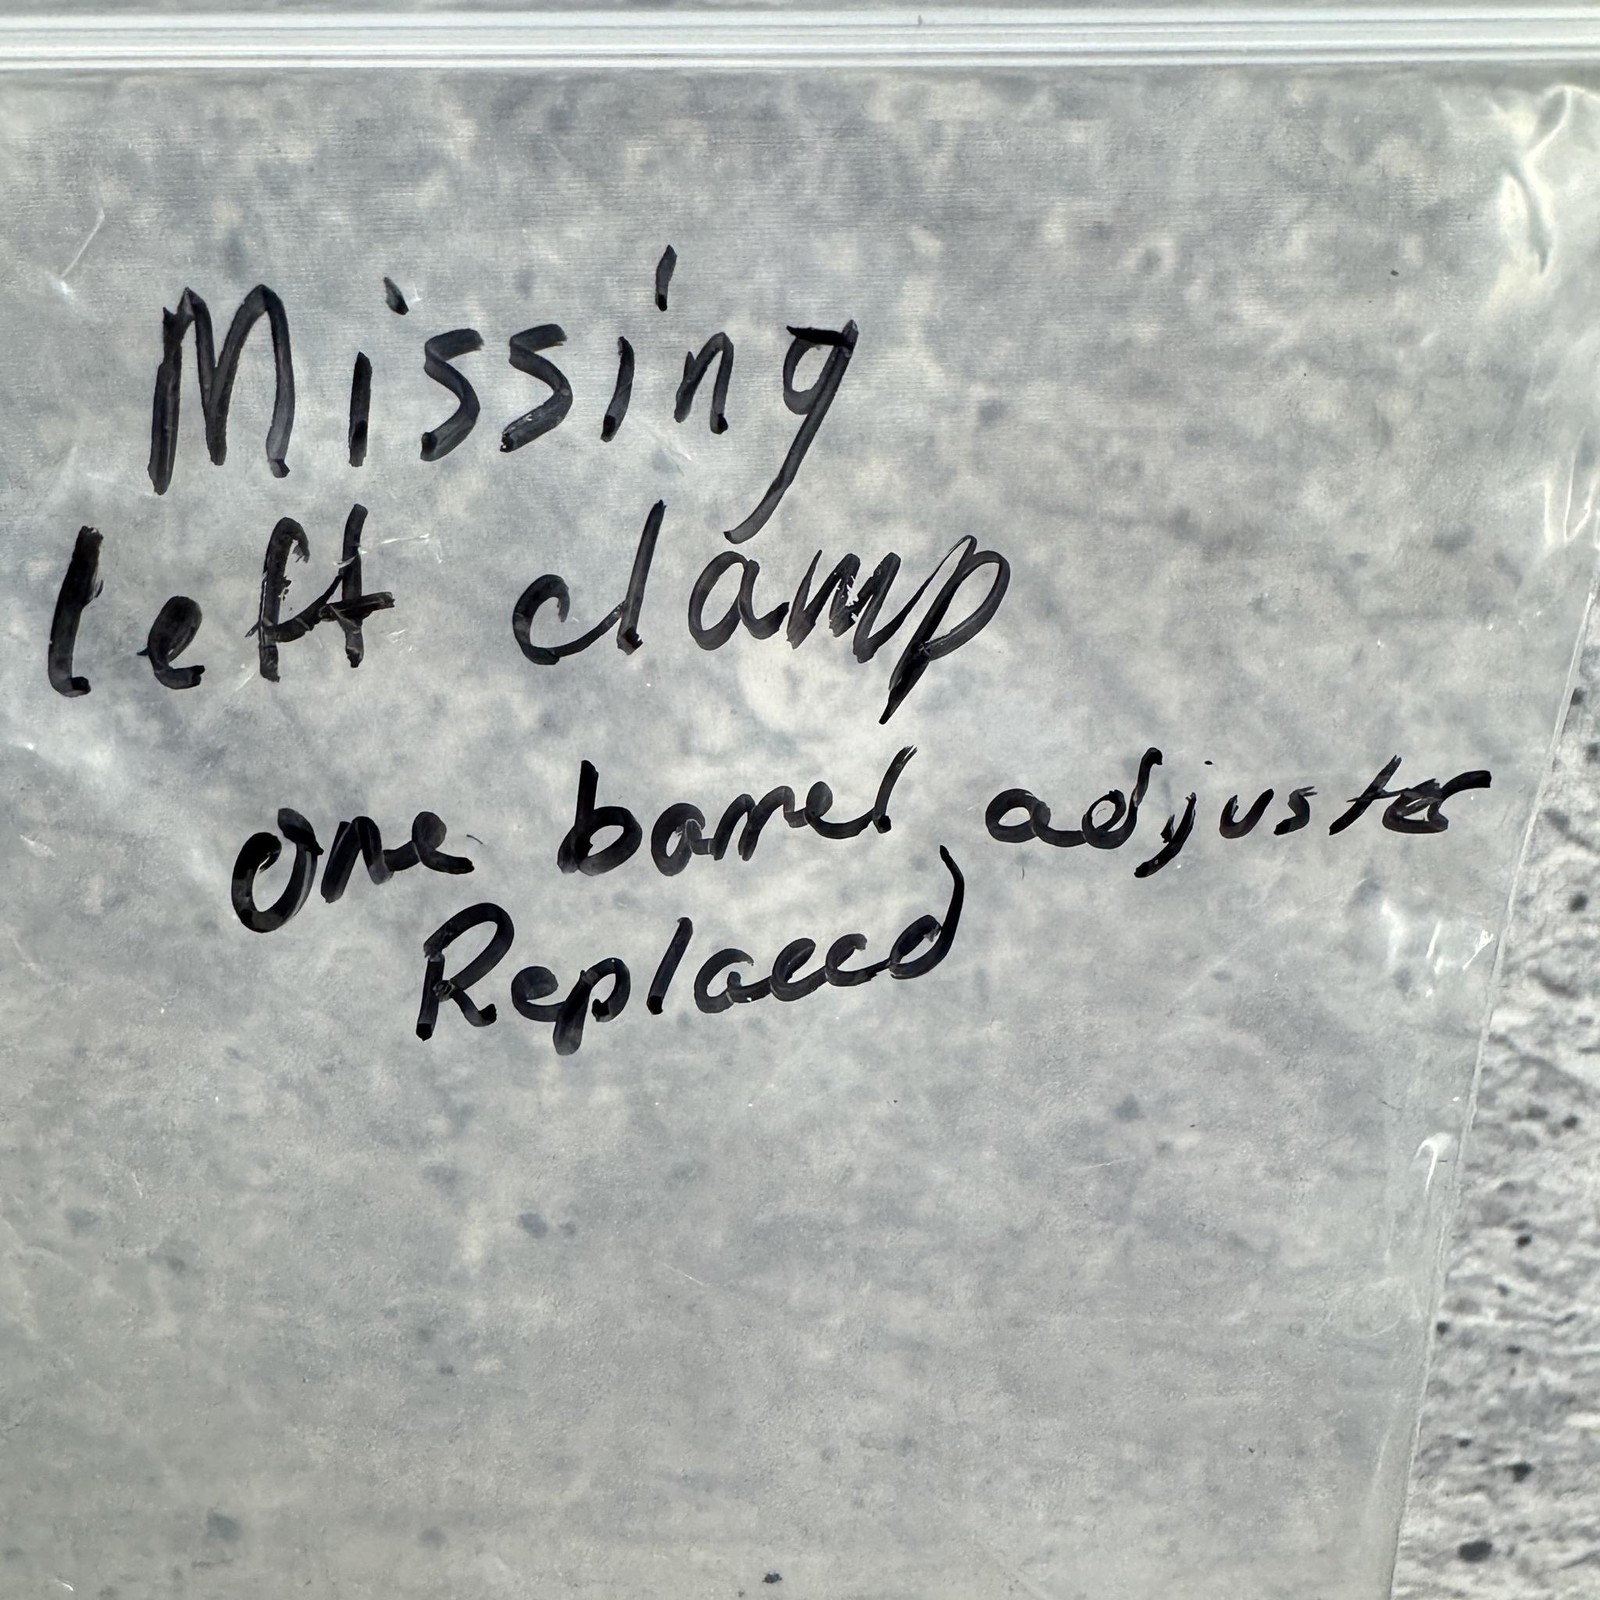 Missing
left clamp
one barrel adjuster
Replaced